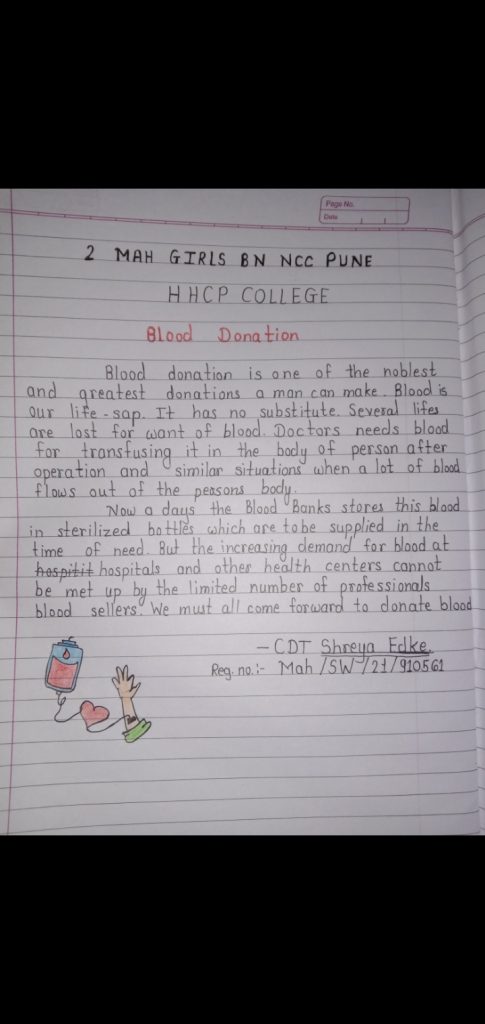 Page No.
Date
2 MAH GIRLS BN NCC PUNE
HHCP COLLEGE
Blood Donation
Blood donation is one of the noblest
and greatest donations a man can make. Blood is
our life-sap. It has no substitute. Several lifes
are lost for want of blood. Doctors needs blood
for transfusing it in the body of person after
operation and similar situations when a lot of blood
flows out of the peasons body.
Now a days the Blood Banks stores this blood
in sterilized bottles which are to be supplied in the
time of need. But the increasing demand for blood at
hospitit hospitals and other health centers cannot
be met up by the limited number of professionals
blood sellers. We must all come forward to donate blood
- CDT Shreya Edke.
Reg. no.:- Mah/SW/21/910561